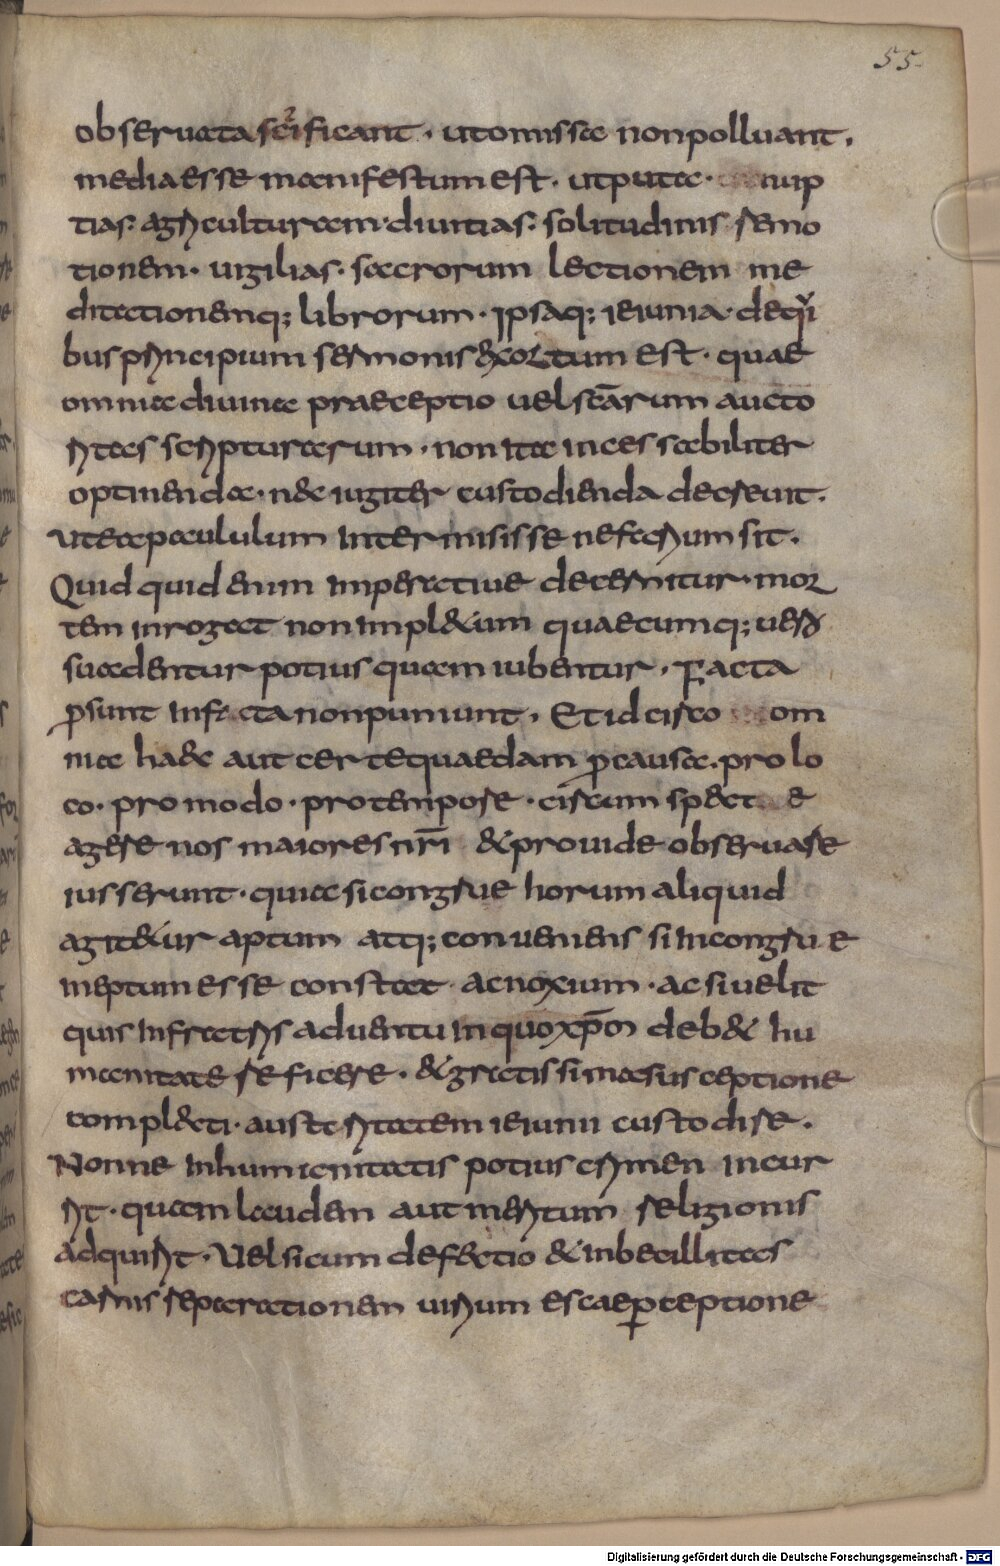 55.
observata scīficant. ut omissa non polluant.
media esse manifestum est. utputa. nup
tias. agriculturam. divitias. solitudinis remo
tionem. vigilias. sacrorum lectionem me
ditationemq; librorum. ipsaq; ieiunia. de qui
bus principium sermonis exortum est. quae
omnia divina praeceptio vel scārum aucto
ritas scripturarum. non ita incessabiliter
optinenda. nec iugiter custodienda decrevit.
ut ea paululum intermisisse nefarium sit.
Quidquid enim imperative decernitur. mor
tem inrogat non impletum quaecumq; vero
suadentur potius quam iubentur. Facta
psunt infecta non puniunt. Et idcirco om
nia haec aut certe quaedam p causa. pro lo
co. pro modo. pro tempore. circumspecte
agere nos maiores nr̄i & provide observare
iusserunt. quia si congrue horum aliquid
agitetur aptum atq; conveniens si incongrue
ineptum esse constat ac noxium. ac si velit
quis in fratris adventu in quo xp̄m debet hu
manitate reficere. & gratissima susceptione
complecti. austeritatem ieiunii custodire.
Nonne inhumanitatis potius crimen incur
rit. quam laudem aut meritum religionis
adquirit. Vel si cum defectio & inbecillitas
carnis reparationem virium escae pceptione
Digitalisierung gefördert durch die Deutsche Forschungsgemeinschaft - DFG